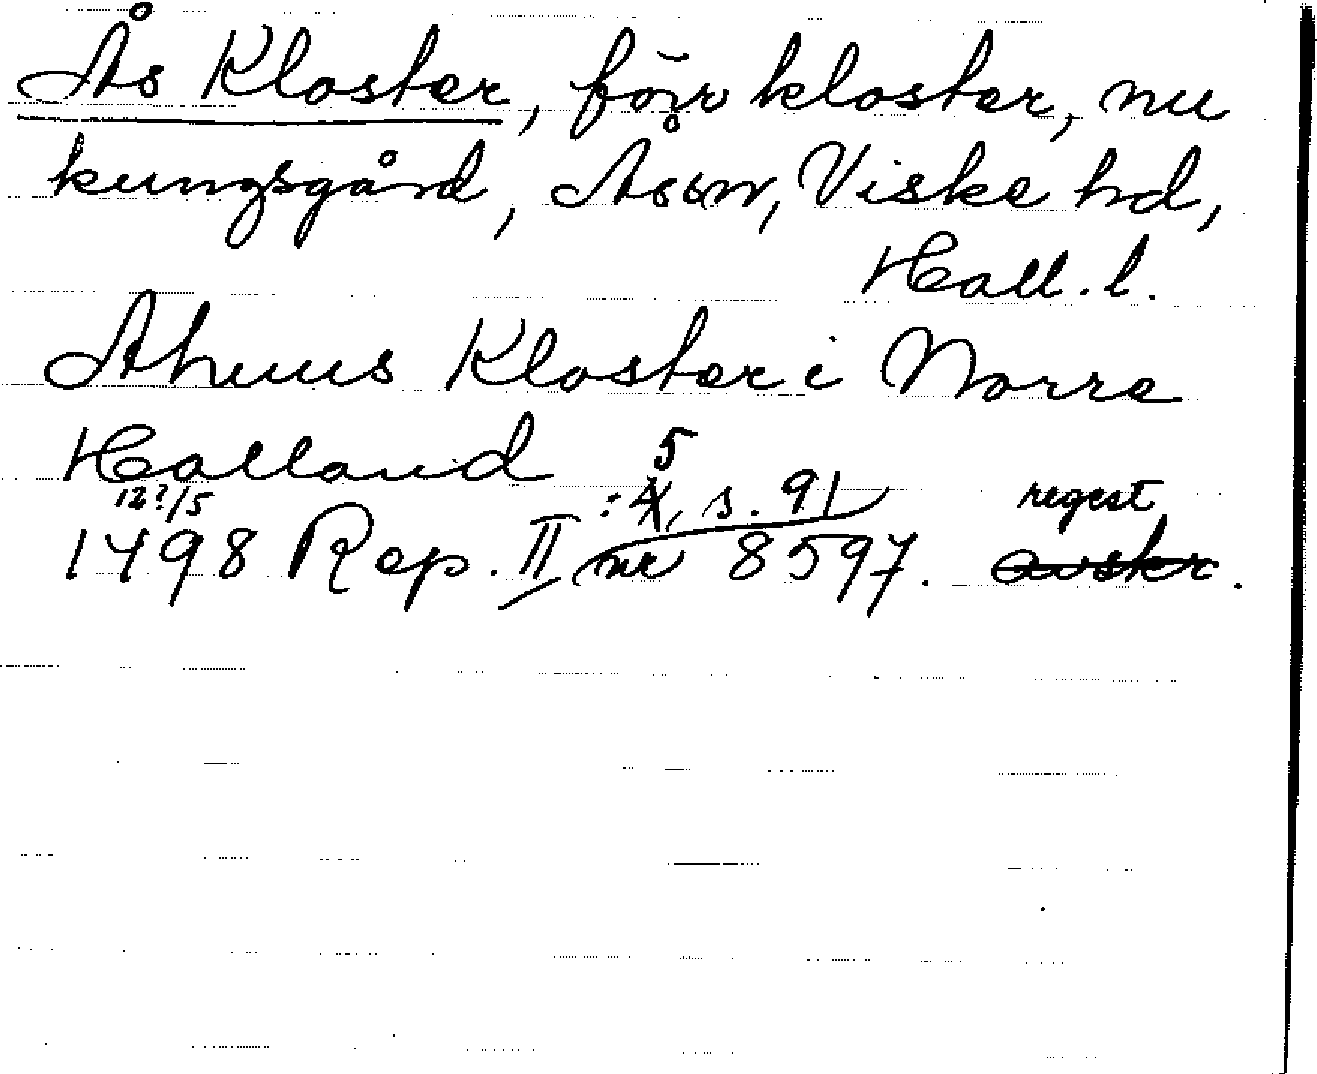 Ås Kloster, förr kloster, nu
kungsgård, Ås sn, Viske hd,
Hall. l.
Ahuus Kloster i Norre
Halland
12?/5 1498 Rep. II :5, s. 91 nr 8597. regest.